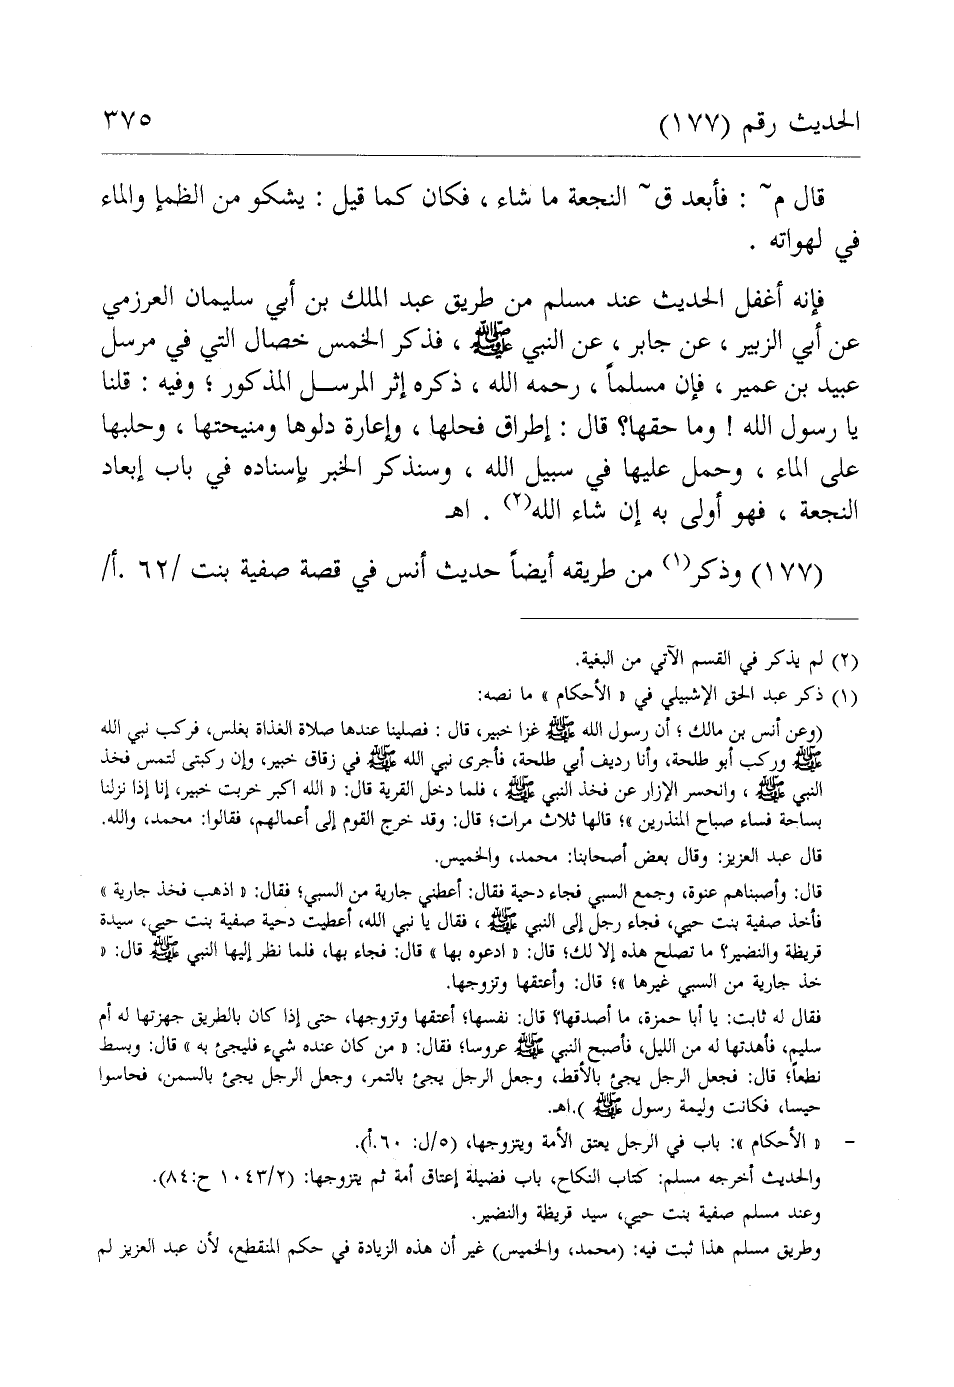 الحديث رقم (١٧٧) ٣٧٥
قال م~ : فأبعد ق~ النجعة ما شاء ، فكان كما قيل : يشكو من الظمإ والماء
في لهواته .
فإنه أغفل الحديث عند مسلم من طريق عبد الملك بن أبي سليمان العرزمي
عن أبي الزبير ، عن جابر ، عن النبي ﷺ ، فذكر الخمس خصال التي في مرسل
عبيد بن عمير ، فإن مسلماً ، رحمه الله ، ذكره إثر المرسل المذكور ؛ وفيه : قلنا
يا رسول الله ! وما حقها؟ قال : إطراق فحلها ، وإعارة دلوها ومنيحتها ، وحلبها
على الماء ، وحمل عليها في سبيل الله ، وسنذكر الخبر بإسناده في باب إبعاد
النجعة ، فهو أولى به إن شاء الله(٢) . اهـ
(١٧٧) وذكر(١) من طريقه أيضاً حديث أنس في قصة صفية بنت /٦٢ .أ/
(٢) لم يذكر في القسم الآتي من البغية.
(١) ذكر عبد الحق الإشبيلي في « الأحكام » ما نصه:
(وعن أنس بن مالك ؛ أن رسول الله ﷺ غزا خبير، قال : فصلينا عندها صلاة الغذاة بغلس، فركب نبي الله
ﷺ وركب أبو طلحة، وأنا رديف أبي طلحة، فأجرى نبي الله ﷺ في زقاق خيبر، وإن ركبتى لتمس فخذ
النبي ﷺ ، وانحسر الإزار عن فخذ النبي ﷺ ، فلما دخل القرية قال: « الله اكبر خربت خيبر، إنا إذا نزلنا
بساحة فساء صباح المنذرين »؛ قالها ثلاث مرات؛ قال: وقد خرج القوم إلى أعمالهم، فقالوا: محمد، والله.
قال عبد العزيز: وقال بعض أصحابنا: محمد، والخميس.
قال: وأصبناهم عنوة، وجمع السبي فجاء دحية فقال: أعطني جارية من السبي؛ فقال: « اذهب فخذ جارية »
فأخذ صفية بنت حيي، فجاء رجل إلى النبي ﷺ ، فقال يا نبي الله، أعطيت دحية صفية بنت حيي، سيدة
قريظة والنضير؟ ما تصلح هذه إلا لك؛ قال: « ادعوه بها » قال: فجاء بها، فلما نظر إليها النبي ﷺ قال: «
خذ جارية من السبي غيرها »؛ قال: وأعتقها وتزوجها.
فقال له ثابت: يا أبا حمزة، ما أصدقها؟ قال: نفسها؛ أعتقها وتزوجها، حتى إذا كان بالطريق جهزتها له أم
سليم، فأهدتها له من الليل، فأصبح النبي ﷺ عروسا؛ فقال: « من كان عنده شيء فليجئ به » قال: وبسط
نطعاً؛ قال: فجعل الرجل يجئ بالأقط، وجعل الرجل يجئ بالتمر، وجعل الرجل يجئ بالسمن، فحاسوا
حيسا، فكانت وليمة رسول ﷺ ).اهـ.
- « الأحكام »: باب في الرجل يعتق الأمة ويتزوجها، (٥/ل: ٦٠.أ).
والحديث أخرجه مسلم: كتاب النكاح، باب فضيلة إعتاق أمة ثم يتزوجها: (١٠٤٣/٢ ح:٨٤).
وعند مسلم صفية بنت حيي، سيد قريظة والنضير.
وطريق مسلم هذا ثبت فيه: (محمد، والخميس) غير أن هذه الزيادة في حكم المنقطع، لأن عبد العزيز لم